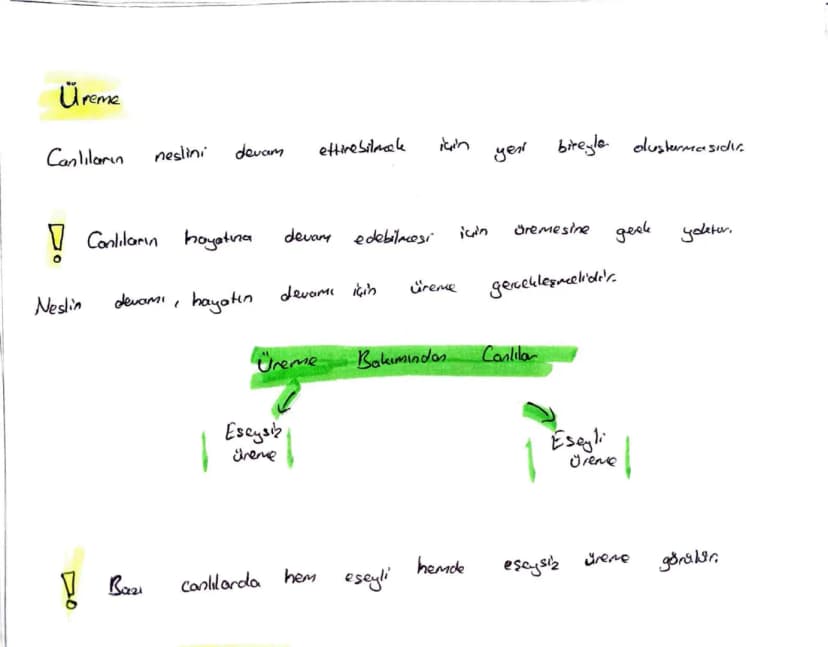 Üreme
Canlıların neslini devam ettirebilmek için yeni bireyle oluşturmasıdır.
! Canlıların hayatına devam edebilmesi için üremesine gerek yoktur.
Neslin devamı, hayatın devamı için üreme gerçekleşmelidir.
Üreme Bakımından Canlılar
Eşeysiz üreme
Eşeyli üreme
! Bazı canlılarda hem eşeyli hemde eşeysiz üreme görülür.